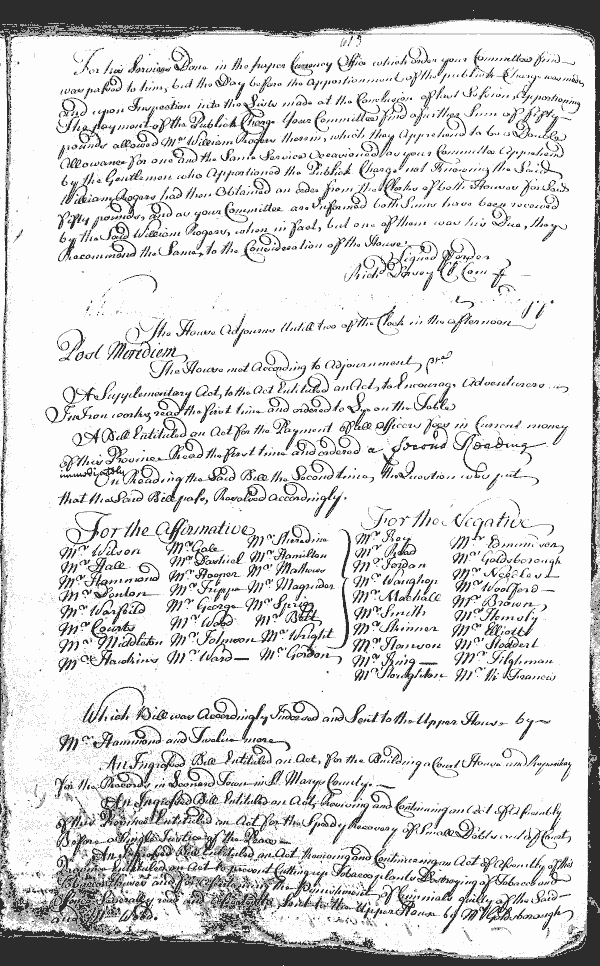 613
For his Services Done in the paper Currency Office which order your Committee find
was passed to him, but the Day before the Apportionment of the publick Charge was made,
and upon Inspection into the Lists made at the Conclusion of last Session, apportioning
the payment of the Publick Charge Your Committee find another Sum of fifty
pounds allowed Mr William Rogers therein, which they Apprehend to be a Double
Allowance for one and the Same Service Occasioned as your Committee Apprehend
by the Gentlemen who Apportioned the Publick Charge not Knowing the Said
William Rogers had then Obtained an order from the Clerks of both Houses for Said
fifty pounds, and as your Committee are Informed both Sums have been received
by the Said William Rogers, when in fact, but one of them was his Due, they
Recommend the Same, to the Consideration of the House.
Signed Order
Richd Dorsey Cl. Com
The House Adjourns Untill two of the Clock in the afternoon
Post Meridiem
The House met According to Adjournment
A Supplementary Act, to the Act Entituled an Act, to Encourage Adventurers in
Iron works, read the first time and ordered to Lye on the Table
A Bill Entituled an Act for the Payment of all Officers fees in Current money
of this Province Read the first time and ordered a Second Reading
immediately
On Reading the Said Bill the Second time, the Question was put
that the Said Bill pass, Resolved Accordingly.
For the Affirmative For the Negative
Mr Wilson Mr Gale Mr Sheredine
Mr Hall Mr Dashiel Mr Hamilton
Mr Hammond Mr Hooper Mr Mathews
Mr Denton Mr Trippe Mr Magruder
Mr Warfield Mr George Mr Sprigg
Mr Courts Mr Wood Mr Bett
Mr Middleton Mr Johnson Mr Wright
Mr Hawkins Mr Ward Mr Gordon
Mr Key Mr Edmondson
Mr Read Mr Goldsborough
Mr Jordan Mr Needles
Mr Waughop Mr Woolford
Mr Machall Mr Brown
Mr Smith Mr Hemsly
Mr Skinner Mr Elliott
Mr Hanson Mr Stoddert
Mr King Mr Tilghman
Mr Stoughton Mr Th Francis
Which Bill was Accordingly Indorsed and Sent to the Upper House by
Mr Hammond and Twelve more
An Ingrossed Bill Entituled an Act, for the Building a Court House and Repository
for the Records in Leonard Town in St Marys County.
An Ingrossed Bill Entituled an Act, Reviving and Continuing an Act of Assembly
of this Province Entituled an Act for the Speedy Recovery of Small Debts out of Court,
Before a Single Justice of the Peace
An Ingrossed Bill Entituled an Act Reviving and Continuing an Act of Assembly of this
Province Entituled an Act to prevent Cutting up Tobacco plants Destroying of Tobacco and
Tobacco houses and for Ascertaining the Punishment of Criminals guilty of the Said
Severally read and Sent to the Upper House by Mr Goldsborough
and Mr Ward.